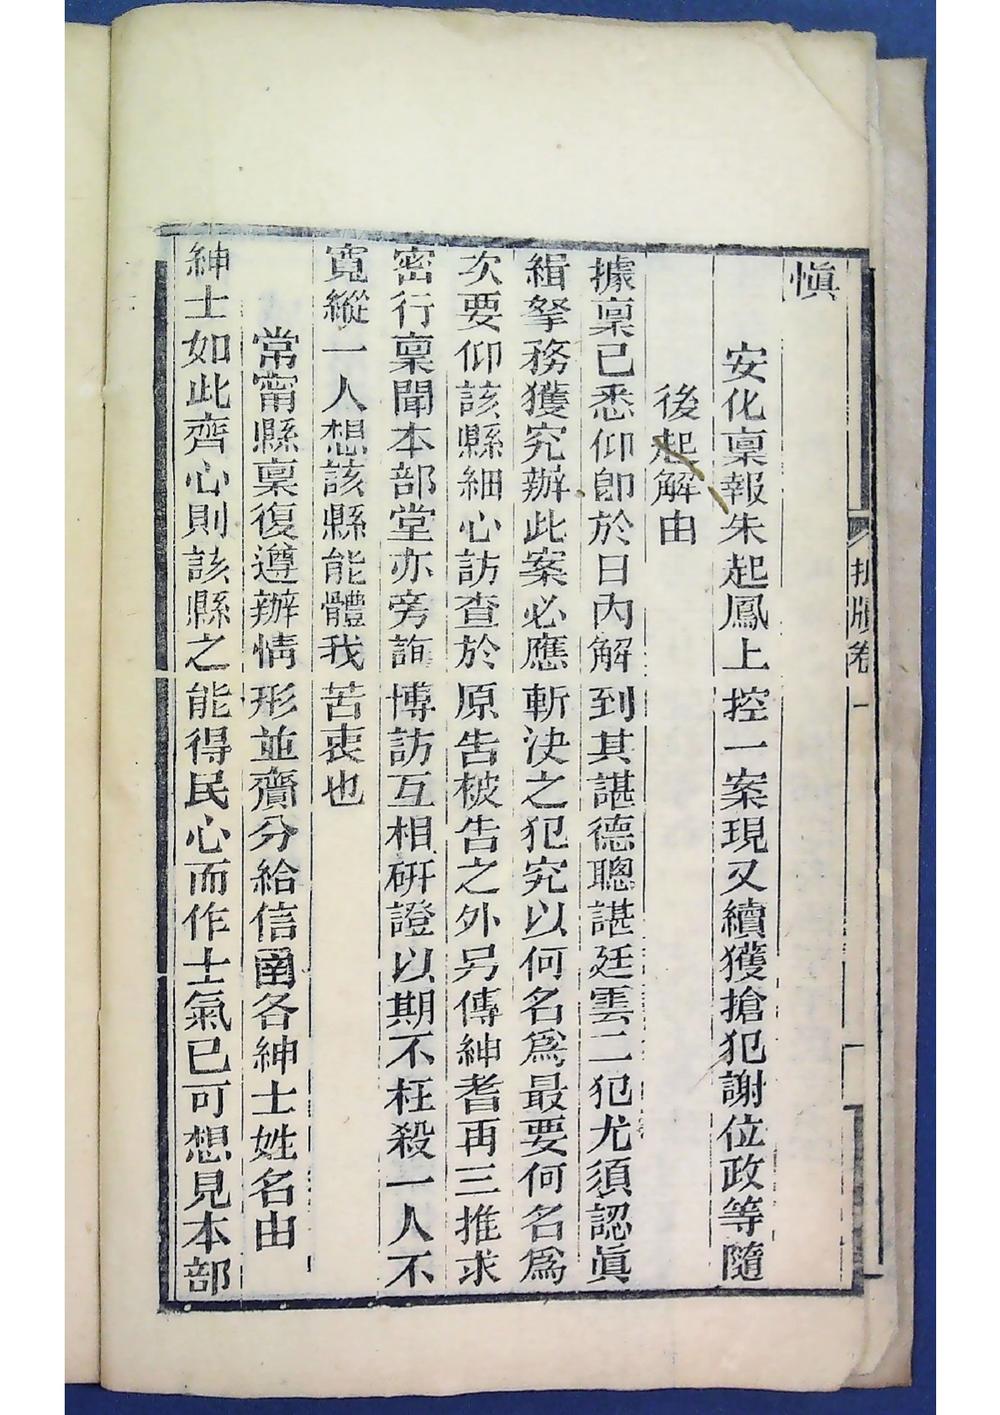 愼
安化稟報朱起鳳上控一案現又續獲搶犯謝位政等隨
後起解由
據稟已悉仰卽於日內解到其諶德聰諶廷雲二犯尤須認眞
緝拏務獲究辦此案必應斬決之犯究以何名爲最要何名爲
次要仰該縣細心訪查於原告被告之外另傳紳耆再三推求
密行稟聞本部堂亦旁詢博訪互相硏證以期不枉殺一人不
寬縱一人想該縣能體我苦衷也
常甯縣稟復遵辦情形並賷分給信圅各紳士姓名由
紳士如此齊心則該縣之能得民心而作士氣已可想見本部
批牘卷一